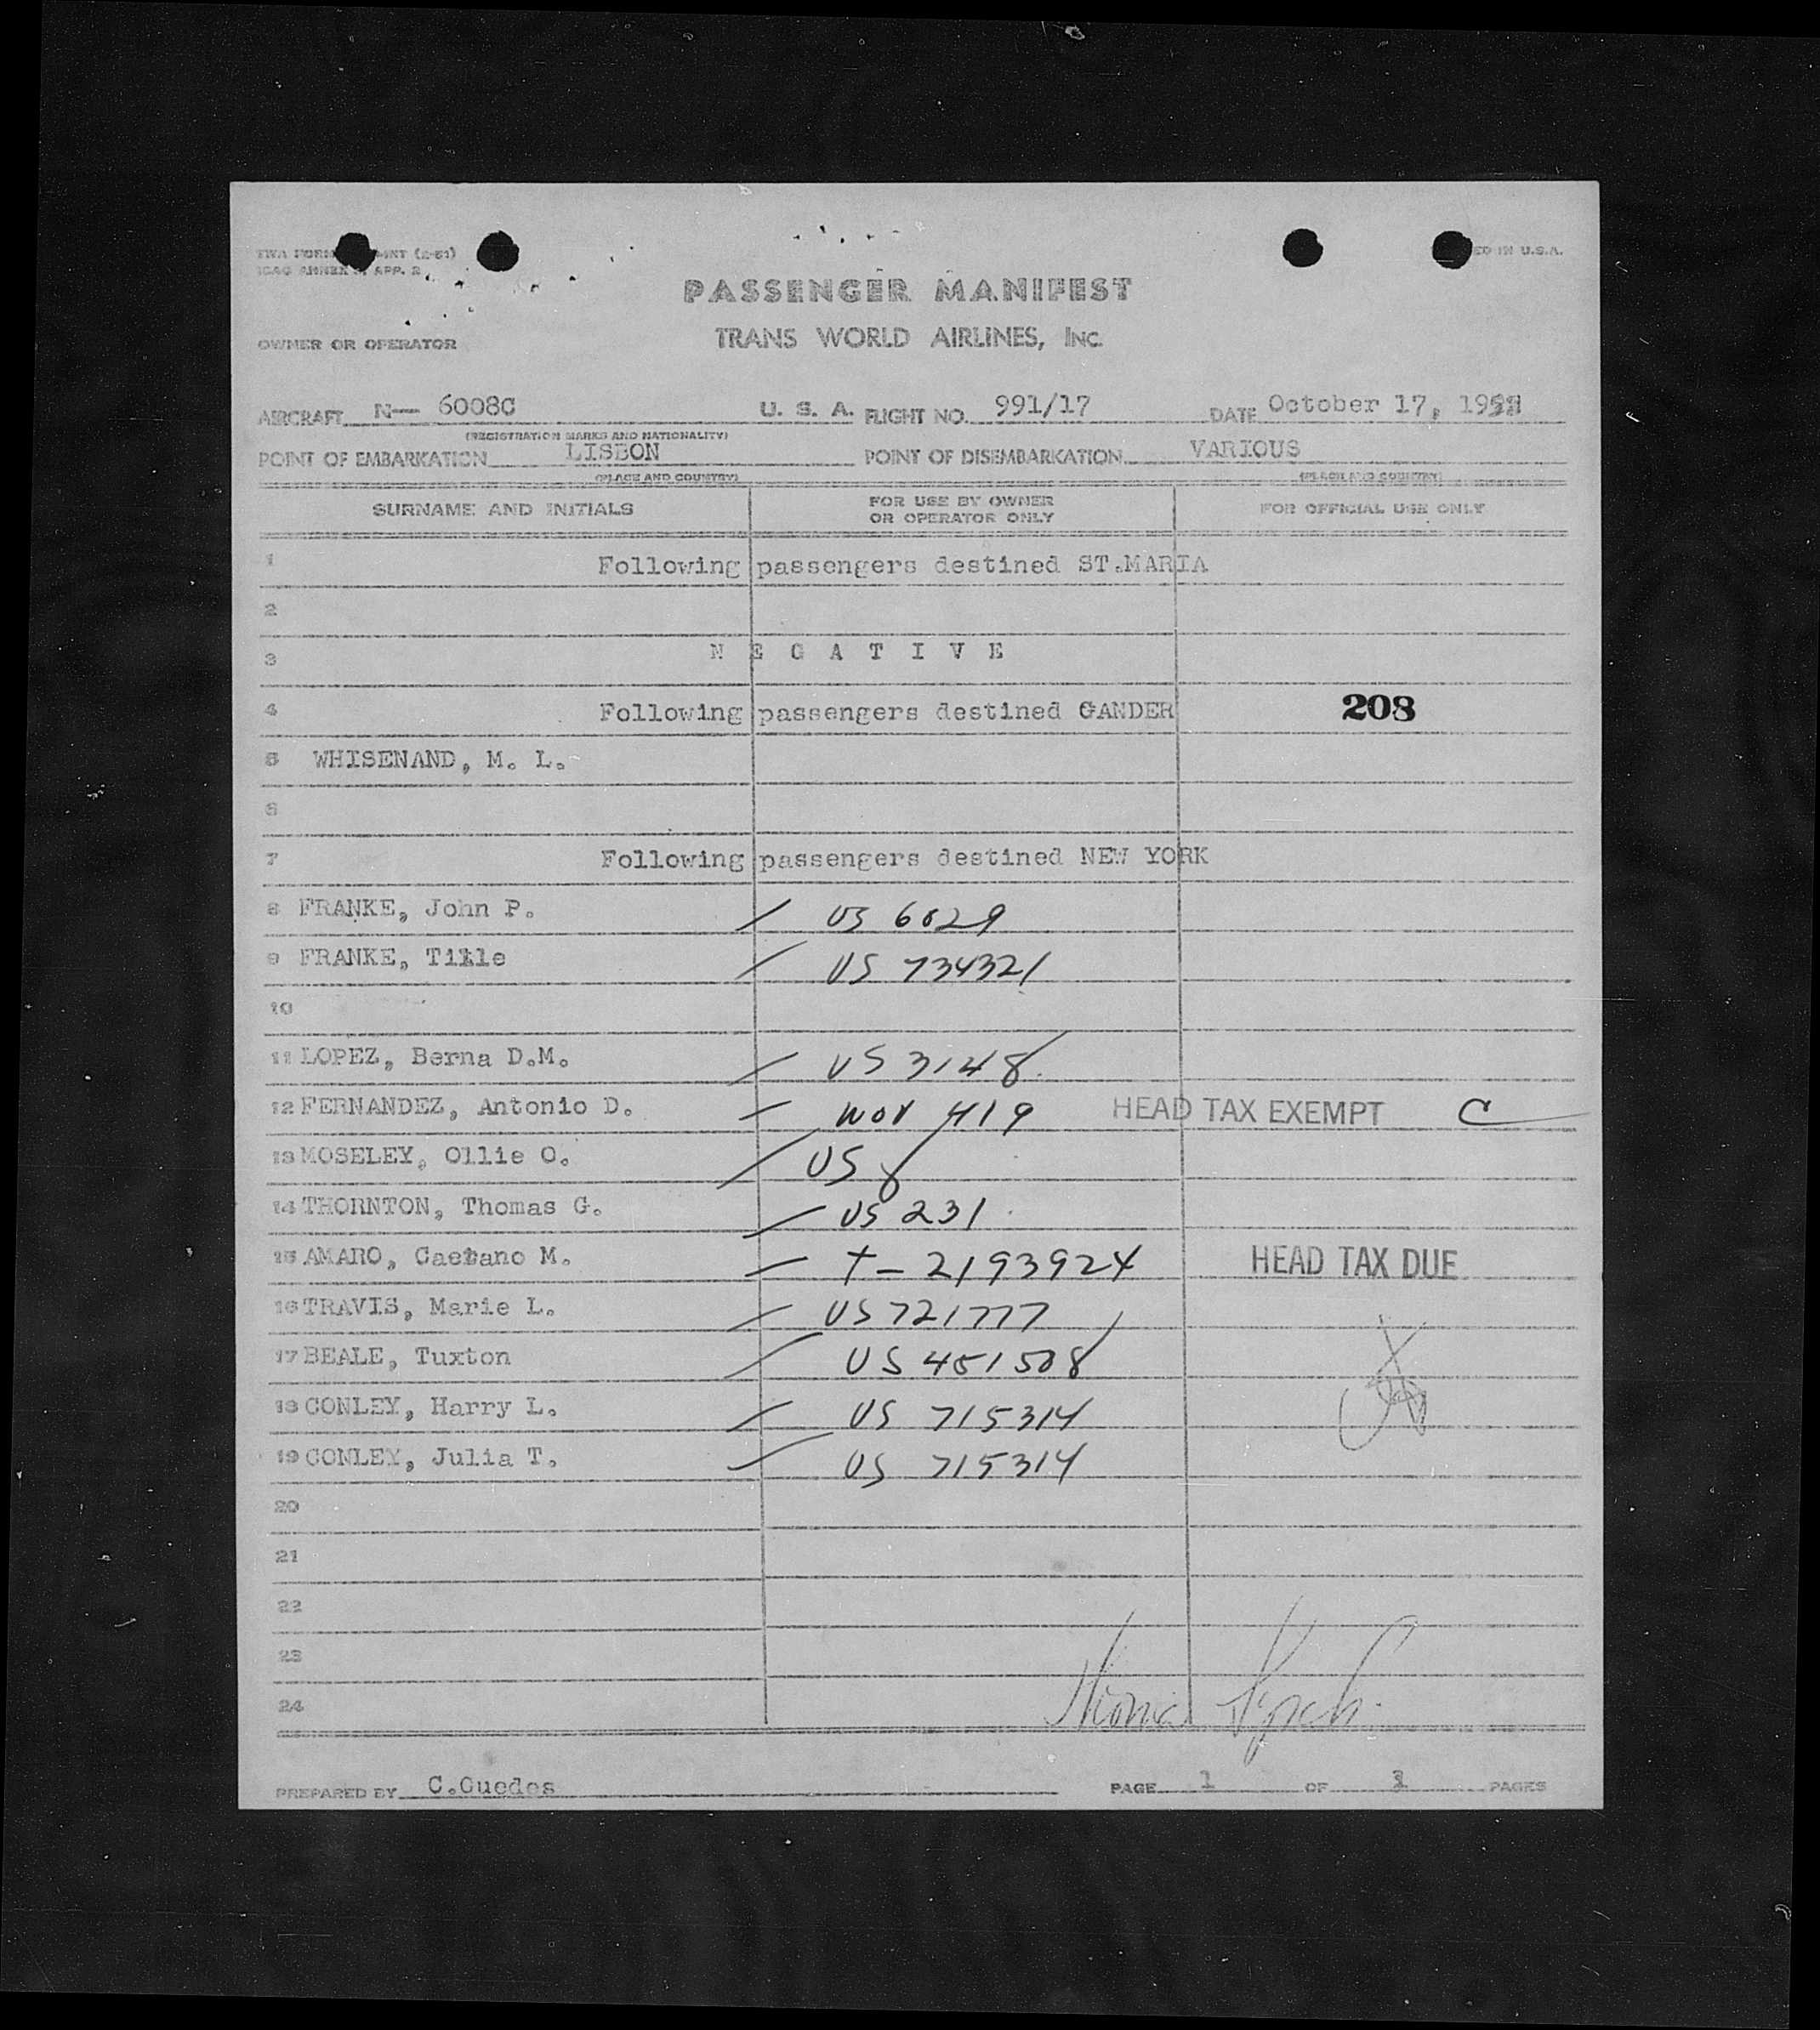 TWA FORM INT (2-51) ED IN U.S.A.
ICAO ANNEX APP. 2
PASSENGER MANIFEST
OWNER OR OPERATOR TRANS WORLD AIRLINES, INC.
AIRCRAFT N— 6008C U. S. A. FLIGHT NO. 991/17 DATE October 17,
(REGISTRATION MARKS AND NATIONALITY)
POINT OF EMBARKATION LISBON POINT OF DISEMBARKATION VARIOUS
(PLACE AND COUNTRY) (PLACE AND COUNTRY)
SURNAME AND INITIALS FOR USE BY OWNER OR OPERATOR ONLY FOR OFFICIAL USE ONLY
1 Following passengers destined ST.MARIA
2
3 N E G A T I V E
4 Following passengers destined GANDER 208
5 WHISENAND, M. L.
6
7 Following passengers destined NEW YORK
8 FRANKE, John P. US 6029
9 FRANKE, Tille US 734321
10
11 LOPEZ, Berna D.M. US 3148
12 FERNANDEZ, Antonio D. 419 HEAD TAX EXEMPT C
13 MOSELEY, Ollie O. US 8
14 THORNTON, Thomas G. US 231
15 AMARO, Caetano M. T- 2193924 HEAD TAX DUE
16 TRAVIS, Marie L. US 721777
17 BEALE, Tuxton US 451508
18 CONLEY, Harry L. US 715314
19 CONLEY, Julia T. US 715314
20
21
22
23
24
PREPARED BY C.Guedes PAGE 1 OF 3 PAGES